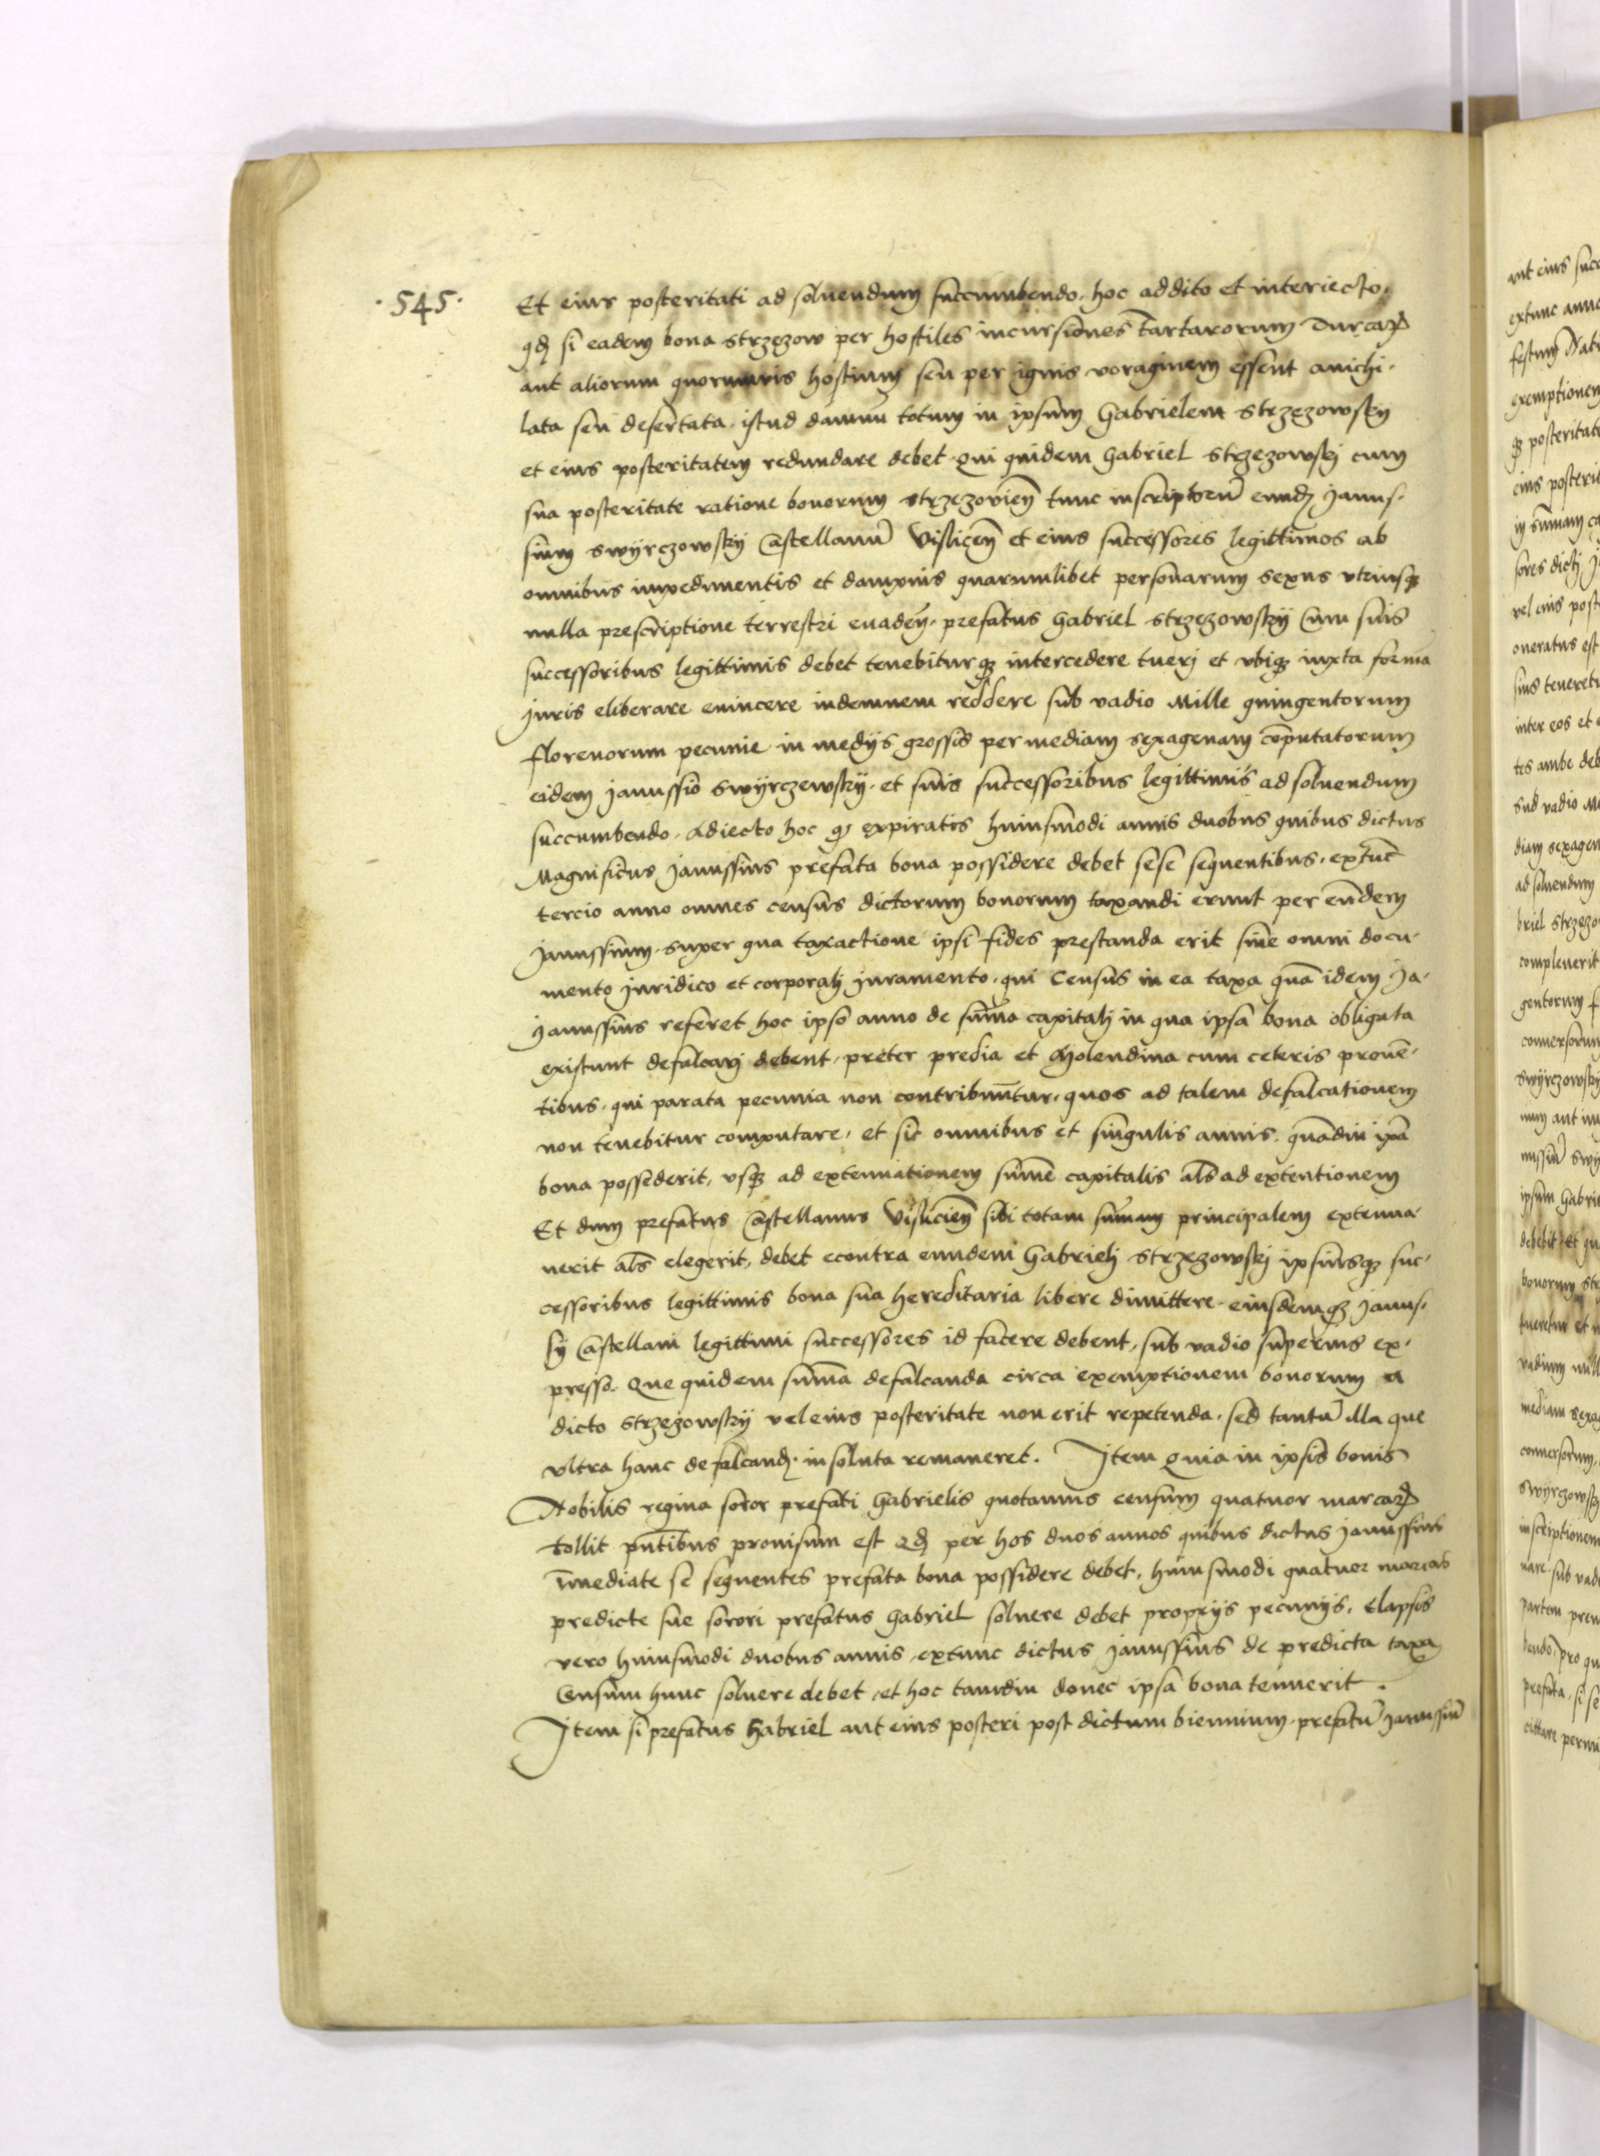 ·545·
Et eius posteritati ad soluendum succumbendo. hoc addito et interiecto.
qđ si eadem bona Strzezow per hostiles incursiones Tartarorum Durcarꝝ
aut aliorum quorumuis hostium seu per ignis voraginem essent anichi-
lata seu desertata. istud damnū totum in ipsum Gabrielem Strzezowsky
et eius posteritatem redundare debet. Qui quidem Gabriel Strzezowskj cum
sua posteritate ratione bonorum Strzezovien̄ tunc inscriptorū eundꝫ Janus-
sium Swyrczowsky Castellanū Vislicen̄ et eius successores legittimos ab
omnibus impedimentis et dampnis quarumlibet personarum sexus vtriusqꝫ
nulla prescriptione terrestri euaden̄. prefatus Gabriel Strzezowsky Cum suis
successoribus legittimis debet tenebiturqꝫ intercedere tuerj et vbiqꝫ iuxta formā
Juris eliberare euincere indemnem reddere sub vadio Mille quingentorum
florenorum pecunie in medÿs grossis per mediam sexagenam cōputatorum
eidem Janussio Swyrczewsky. et suis successoribus legittimis ad soluendum
succumbendo. Adiecto hoc qꝫ expiratis huiusmodi annis duobus quibus dictus
Magnificus Janussius prefata bona possidere debet sese sequentibus. extunc
tercio anno omnes census dictorum bonorum taxandi erunt per eundem
Janussium. super qua taxactione ipsi fides prestanda erit sine omni docu-
mento Juridico et corporalj Juramento. qui Census in ea taxa quā idem Ja-
Janussius referet hoc ipso anno de summa capitalj in qua ipsa bona obligata
existunt defalcarj debent. preter predia et Molendina cum ceteris prouē-
tibus. qui parata pecunia non contribuūtur. quos ad talem defalcationem
non tenebitur computare. et sic omnibus et singulis annis. quādiu ipā
bona possederit. vsqꝫ ad extenuationem summe capitalis als̄ ad extentionem
Et dum prefatus Castellanus Visliciēn sibi totam summam principalem extenua-
uerit als̄ elegerit, debet econtra eundem Gabrielj Strzezowskj ipsiusqꝫ suc-
cessoribus legittimis bona sua hereditaria libere dimittere. eiusdemqꝫ Janus-
sÿ Castellani legittimi successores id facere debent, sub vadio superius ex-
presso. Que quidem summa defalcanda circa exemptionem bonorum a
dicto Strzezowsky vel eius posteritate non erit repetenda. sed tantū illa que
vltra hanc defalcandꝫ. insoluta remaneret. Item Quia in ipsis bonis
Nobilis regina soror prefati Gabrielis quotannis censum quatuor marcarꝝ
tollit pn̄tibus prouisum est Qđ per hos duos annos quibus dictus Janussius
īmediate se sequentes prefata bona possidere debet. huiusmodi quatuor marcas
predicte sue sorori prefatus Gabriel soluere debet proprÿs pecunÿs. Elapsis
vero huiusmodi duobus annis. extunc dictus Janussius de predicta taxa
Censum hunc soluere debet. et hoc tamdiu donec ipsa bona tenuerit.
Item si prefatus Gabriel aut eius posteri post dictum biennium. prefatū Janussiū